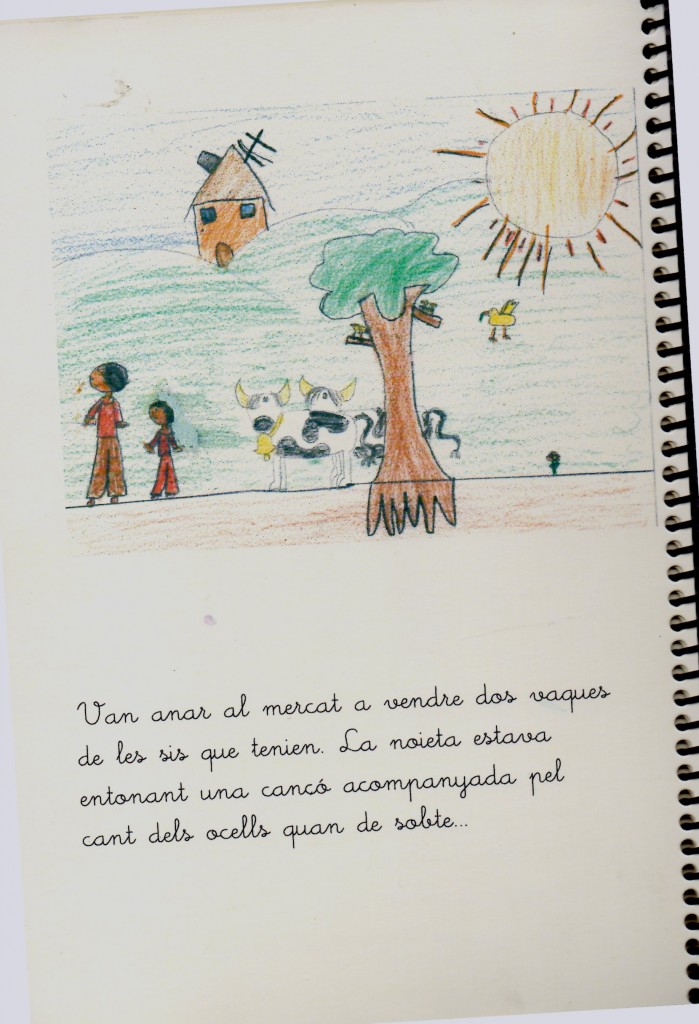 Van anar al mercat a vendre dos vaques
de les sis que tenien. La noieta estava
entonant una cançó acompanyada pel
cant dels ocells quan de sobte...